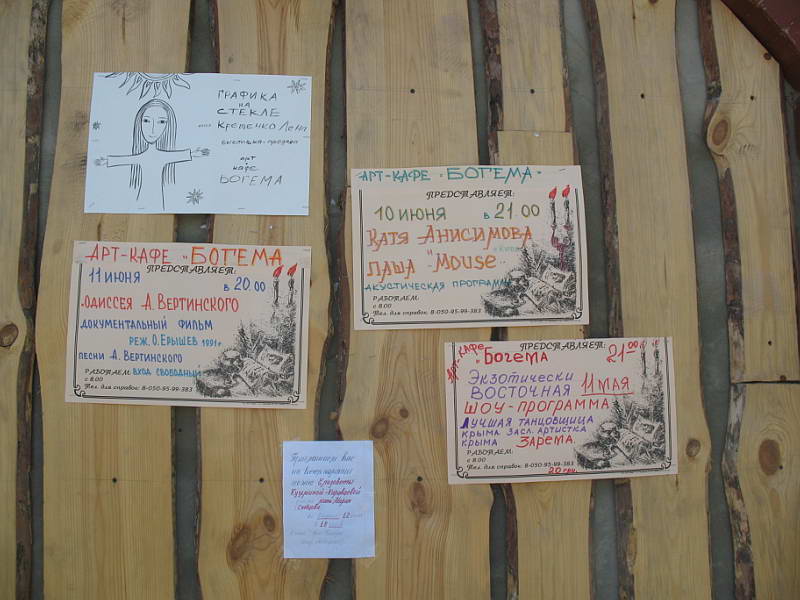 ГРАФИКА
на
СТЕКЛЕ
Кретенко Лена
выставка-продажа
арт
кафе
БОГЕМА
АРТ-КАФЕ "БОГЕМА"
ПРЕДСТАВЛЯЕТ:
10 июня в 21.00
КАТЯ АНИСИМОВА
и
ПАША -MOUSE-
АКУСТИЧЕСКАЯ ПРОГРАММА
РАБОТАЕМ:
с 8.00
Тел. для справок: 8-050-95-99-383
АРТ-КАФЕ "БОГЕМА
ПРЕДСТАВЛЯЕТ:
11 ИЮНЯ в 20.00
"ОДИССЕЯ А. ВЕРТИНСКОГО
ДОКУМЕНТАЛЬНЫЙ ФИЛЬМ
РЕЖ. О. ЕРЫШЕВ 1991г.
ПЕСНИ А. ВЕРТИНСКОГО
РАБОТАЕМ: ВХОД СВОБОДНЫЙ
с 8.00
Тел. для справок: 8-050-95-99-383
АРТ-КАФЕ ПРЕДСТАВЛЯЕТ: 21 00
"Богема
Экзотически
ВОСТОЧНАЯ 11 МАЯ
ШОУ-ПРОГРАММА
ЛУЧШАЯ ТАНЦОВЩИЦА
КРЫМА. ЗАСЛ. АРТИСТКА
КРЫМА ЗАРЕМА.
РАБОТАЕМ:
с 8.00
Тел. для справок: 8-050-95-99-383
20 грн.
Приглашаем вас
Елизаветы